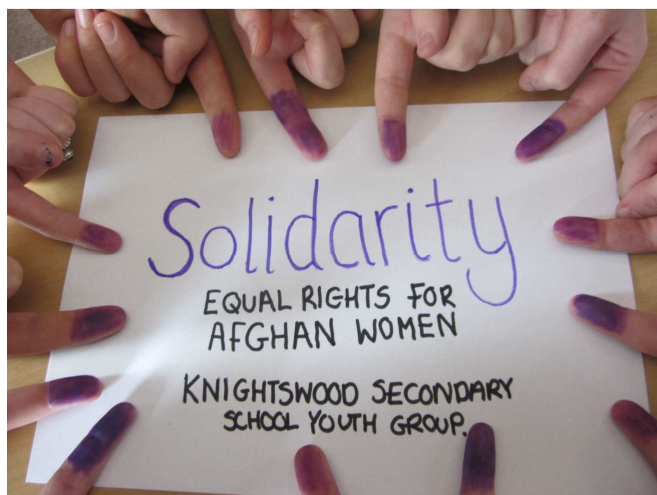 Solidarity
EQUAL RIGHTS FOR
AFGHAN WOMEN
KNIGHTSWOOD SECONDARY
SCHOOL YOUTH GROUP.